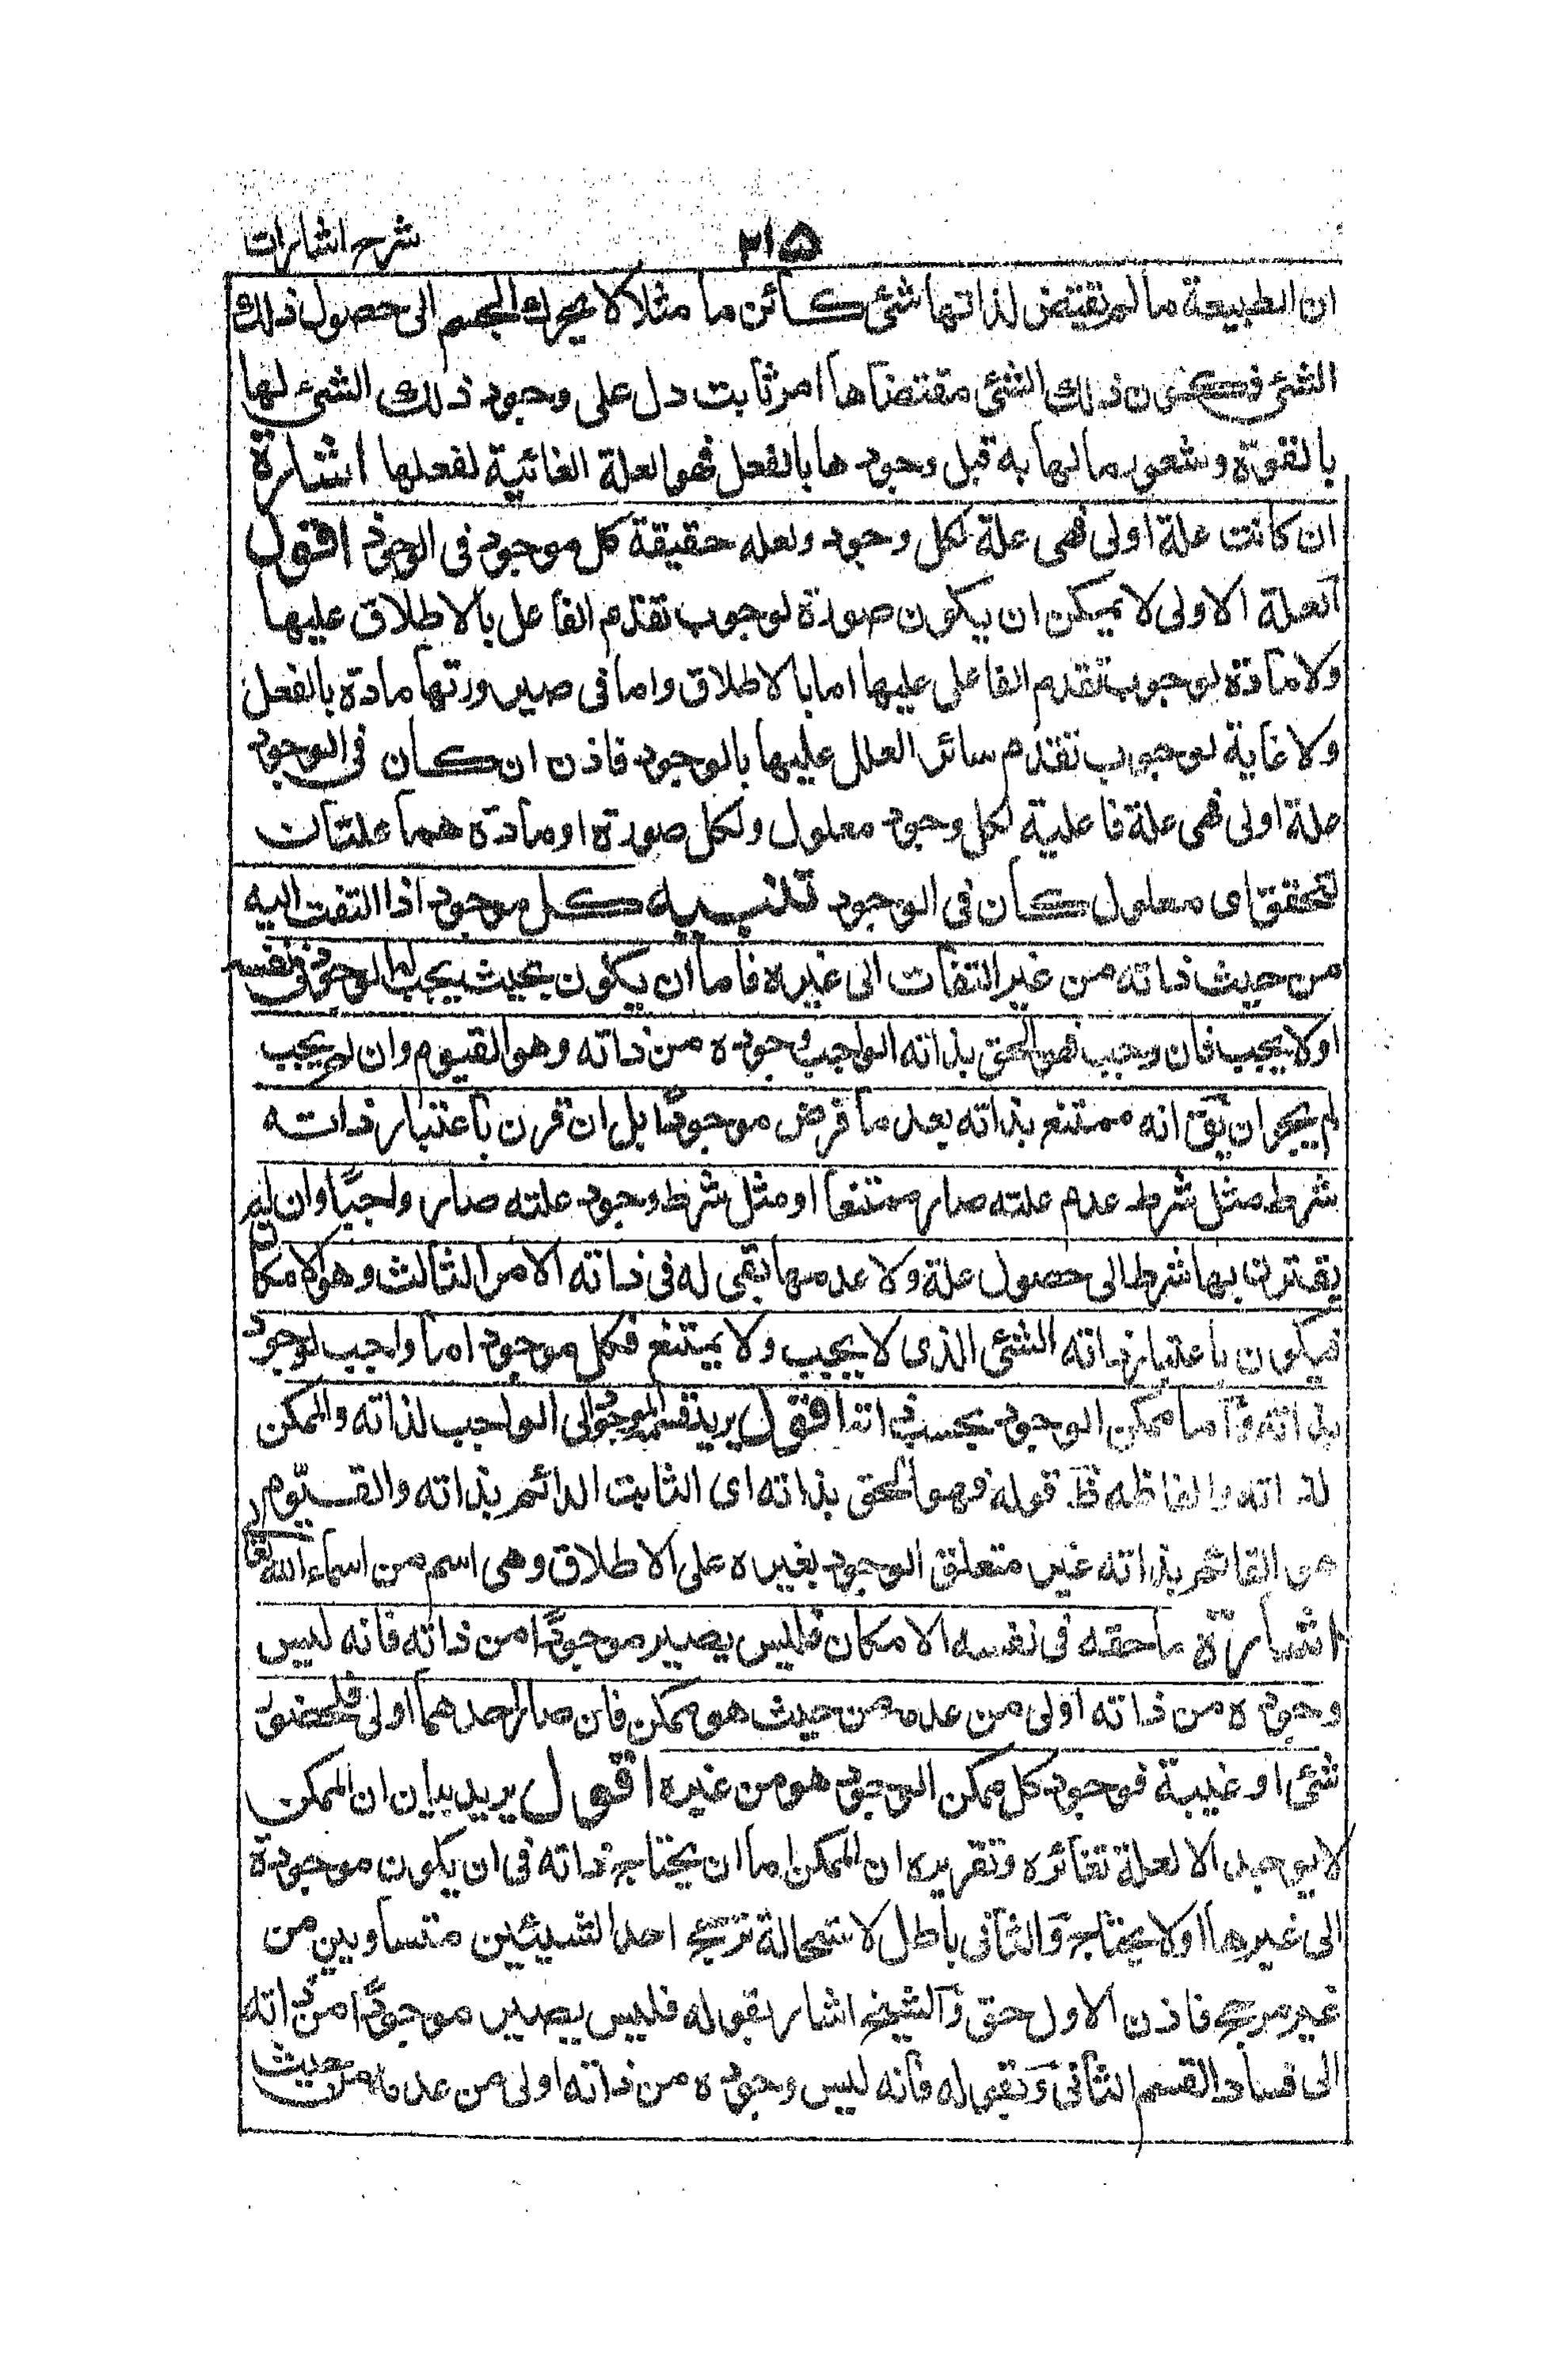 شرح اشارات
٢١٥
ان الطبيعة ما لم تقتض لذاتها شئ كأئن ما مثلا لا يحرك الجسم الى حصول ذلك
الشئ فكون ذلك الشئ مقتضاها امر ثابت دل على وجود ذلك الشئ لها
بالقوة و شعور ما لها به قبل وجودها بالفعل فهو العلة الغائية لفعلها اشارة
ان كانت علة اولى فهى علة لكل وجود ولعله حقيقة كل موجود فى الوجود اقول
العلة الاولى لا يمكن ان يكون صورة لوجوب تقدم الفاعل بالاطلاق عليها
ولا مادة لوجوب تقدم الفاعل عليها اما بالاطلاق واما فى صيرورتها مادة بالفعل
ولا غاية لوجوب تقدم سائر العلل عليها بالوجود فاذن ان كان فى الوجود
علة اولى فهى علة فاعلية لكل وجود معلول ولكل صورة او مادة هما علتان
لتحقق اى معلول كان فى الوجود تنبيه كل موجود اذا التفت اليه
من حيث ذاته من غير التفات الى غيره فاما ان يكون بحيث يجب له الوجود فى نفسه
اولا يجب فان وجب فهو الحق بذاته الواجب وجوده من ذاته وهو القيوم وان لم يجب
لم يجز ان يق انه ممتنع بذاته بعد ما فرض موجودا بل ان قرن باعتبار ذاته
شرط مثل شرط عدم علته صار ممتنعا او مثل شرط وجود علته صار واجبا وان لم
يقترن بها شرط الى حصول علة ولا عدمها بقى له فى ذاته الامر الثالث وهو الامكان
فيكون باعتبار ذاته الشئ الذى لا يجب ولا يمتنع فكل موجود اما واجب لوجود
بذاته واما ممكن الوجود بحسب ذاته اقول يريد قسمة الموجود الى الواجب لذاته والممكن
لذاته والفاظه ظ قوله فهو الحق بذاته اى الثابت الدائم بذاته والقيوم
هو القائم بذاته غير متعلق الوجود بغيره على الاطلاق وهى اسم من اسماء الله تعا
اشارة ما حقه فى نفسه الامكان فليس يصير موجودا من ذاته فانه ليس
وجوده من ذاته اولى من عدمه من حيث هو ممكن فان صار احدهما اولى فلحضور
شئ او غيبة فوجود كل ممكن الوجود هو من غيره اقول يريد بيان ان الممكن
لا يوجد الا لعلة تغائره وتقريره ان الممكن اما ان يحتاج ذاته فى ان يكون موجودة
الى غيرها اولا يحتاج والثانى باطل لاستحالة ترجح احد الشيئين متساويين من
غير مرجح فاذن الاول حق والشيخ اشار بقوله فليس يصير موجودا من ذاته
الى فساد القسم الثانى وبقوله فانه ليس وجوده من ذاته اولى من عدمه من حيث